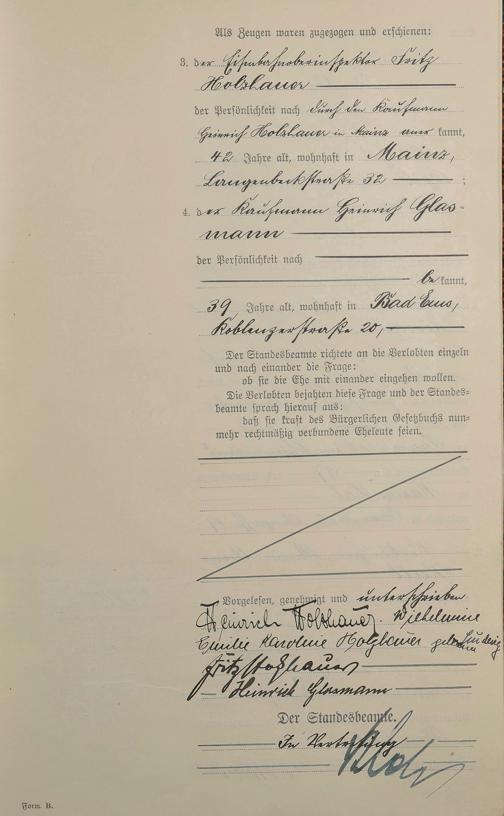 Als Zeugen waren zugezogen und erschienen:
3. der Eisenbahnoberinspektor Fritz
Holzhauer
der Persönlichkeit nach durch den Kaufmann
Heinrich Holzhauer in Mainz aner kannt,
42 Jahre alt, wohnhaft in Mainz,
Langenbeckstraße 32 ;
4. der Kaufmann Heinrich Glas-
mann
der Persönlichkeit nach
be kannt,
39 Jahre alt, wohnhaft in Bad Ems,
Koblenzerstraße 20,
Der Standesbeamte richtete an die Verlobten einzeln
und nach einander die Frage:
ob sie die Ehe mit einander eingehen wollen.
Die Verlobten bejahten diese Frage und der Standes-
beamte sprach hierauf aus:
daß sie kraft des Bürgerlichen Gesetzbuchs nun-
mehr rechtmäßig verbundene Eheleute seien.
Vorgelesen, genehmigt und unterschrieben
Heinrich Holzhauer. Wilhelmine
Emilie Karoline Holzhauer geborene
Fritz Holzhauer
Heinrich Glasmann
Der Standesbeamte.
In Vertretung
Form. B.